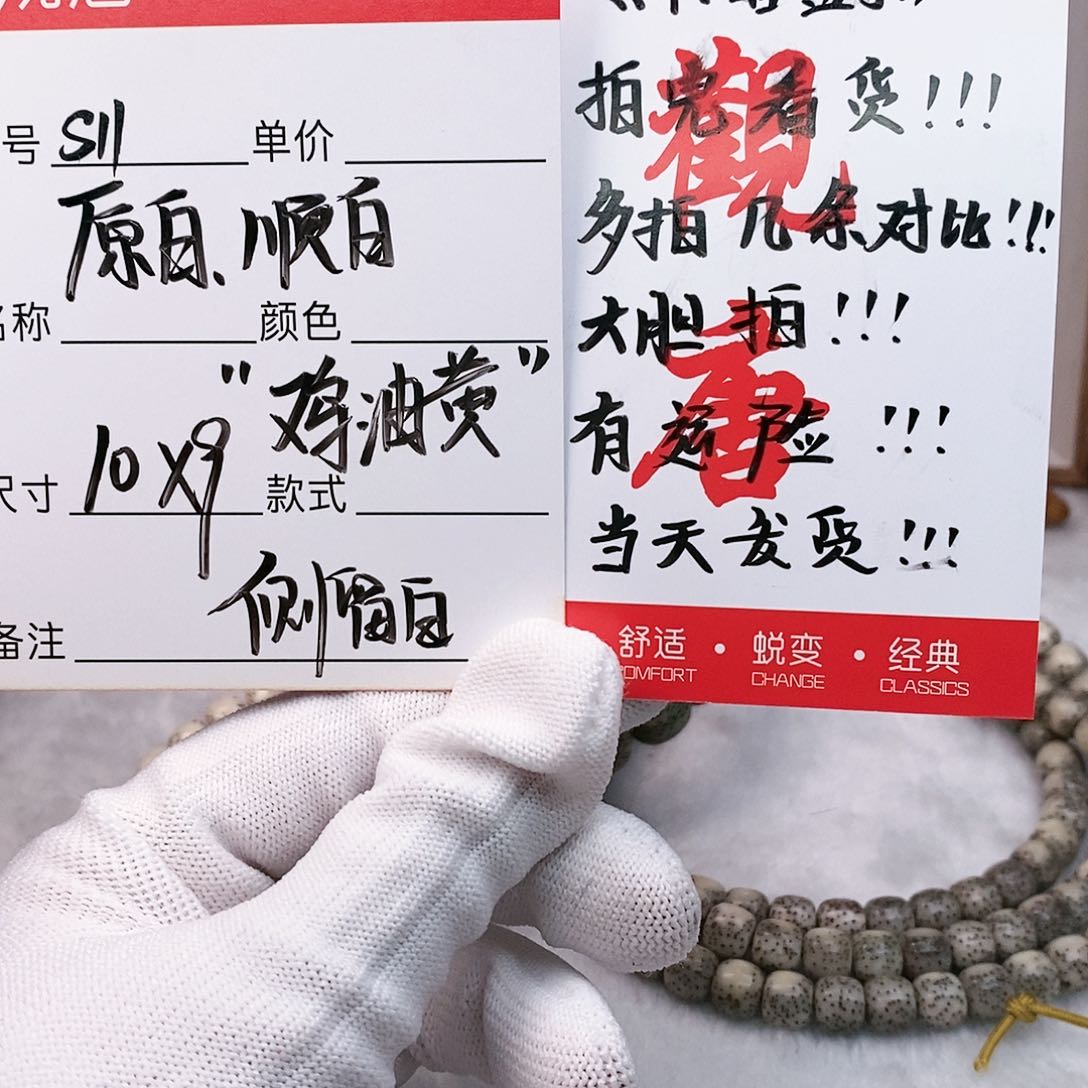 号 S11 单价
原白、顺白
名称 颜色
"鸡油黄"
尺寸 10X9 款式
侧留白
备注
拍 看货!!!
多拍几条对比!!!
大胆拍!!!
有运险!!!
当天发货!!!
觀
舒适 · 蜕变 · 经典
COMFORT CHANGE CLASSICS